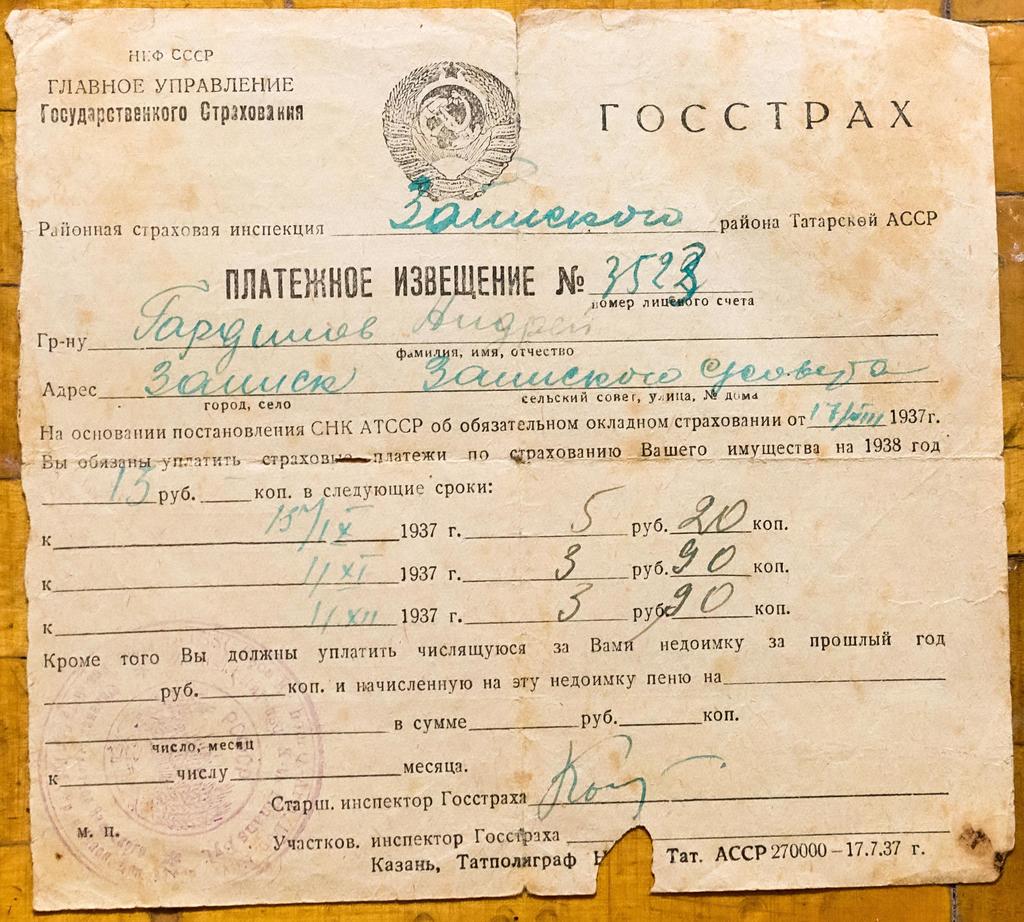 НКФ СССР
ГЛАВНОЕ УПРАВЛЕНИЕ
Государственного Страхования
ГОССТРАХ
Районная страховая инспекция Заинского района Татарской АССР
ПЛАТЕЖНОЕ ИЗВЕЩЕНИЕ № 3523
номер лицевого счета
Гр-ну Андрей
фамилия, имя, отчество
Адрес Заинск Заинского совета
город, село сельский совет, улица, № дома
На основании постановления СНК АТССР об обязательном окладном страховании от 17/VIII 1937г.
Вы обязаны уплатить страховые платежи по страхованию Вашего имущества на 1938 год
13 руб. — коп. в следующие сроки:
к 15/IX 1937 г. 5 руб. 20 коп.
к 1/XI 1937 г. 3 руб. 90 коп.
к 1/XII 1937 г. 3 руб. 90 коп.
Кроме того Вы должны уплатить числящуюся за Вами недоимку за прошлый год
руб. коп. и начисленную на эту недоимку пеню на
в сумме руб. коп.
число, месяц
к числу месяца.
Старш. инспектор Госстраха
м. п.
Участков. инспектор Госстраха
Казань, Татполиграф Тат. АССР 270000—17.7.37 г.